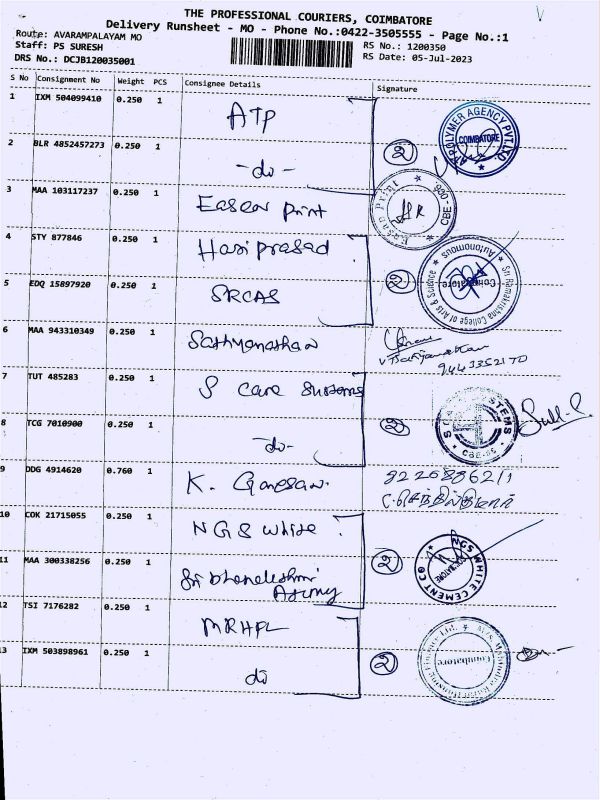 THE PROFESSIONAL COURIERS, COIMBATORE
Delivery Runsheet - MO - Phone No.:0422-3505555 - Page No.:1
Route: AVARAMPALAYAM MO
Staff: PS SURESH
DRS No.: DCJB120035001
RS No.: 1200350
RS Date: 05-Jul-2023
S No Consignment No Weight PCS Consignee Details Signature
1 IXM 504099410 0.250 1 ATP
POLYMER AGENCY PVT.LTD. COIMBATORE
2 BLR 4852457273 0.250 1 -do-
2
3 MAA 103117237 0.250 1 Easear Print
Easan Print * CBE-
HR
4 STY 877846 0.250 1 Hari prasad
5 EDQ 15897920 0.250 1 SRCAS
2
Sri Ramakrishna College of Arts & Science * Autonomous Coimbatore
6 MAA 943310349 0.250 1 Sathyanathan
7 TUT 485283 0.250 1 S care Systems
8 TCG 7010900 0.250 1 -do-
2
9 DDG 4914620 0.760 1 K. Ganesan.
10 COK 21715055 0.250 1 NGS white
11 MAA 300338256 0.250 1
2
NGS WHITE CEMENT CO COIMBATORE
12 TSI 7176282 0.250 1 MRHFL
13 IXM 503898961 0.250 1 do
2
Coimbatore